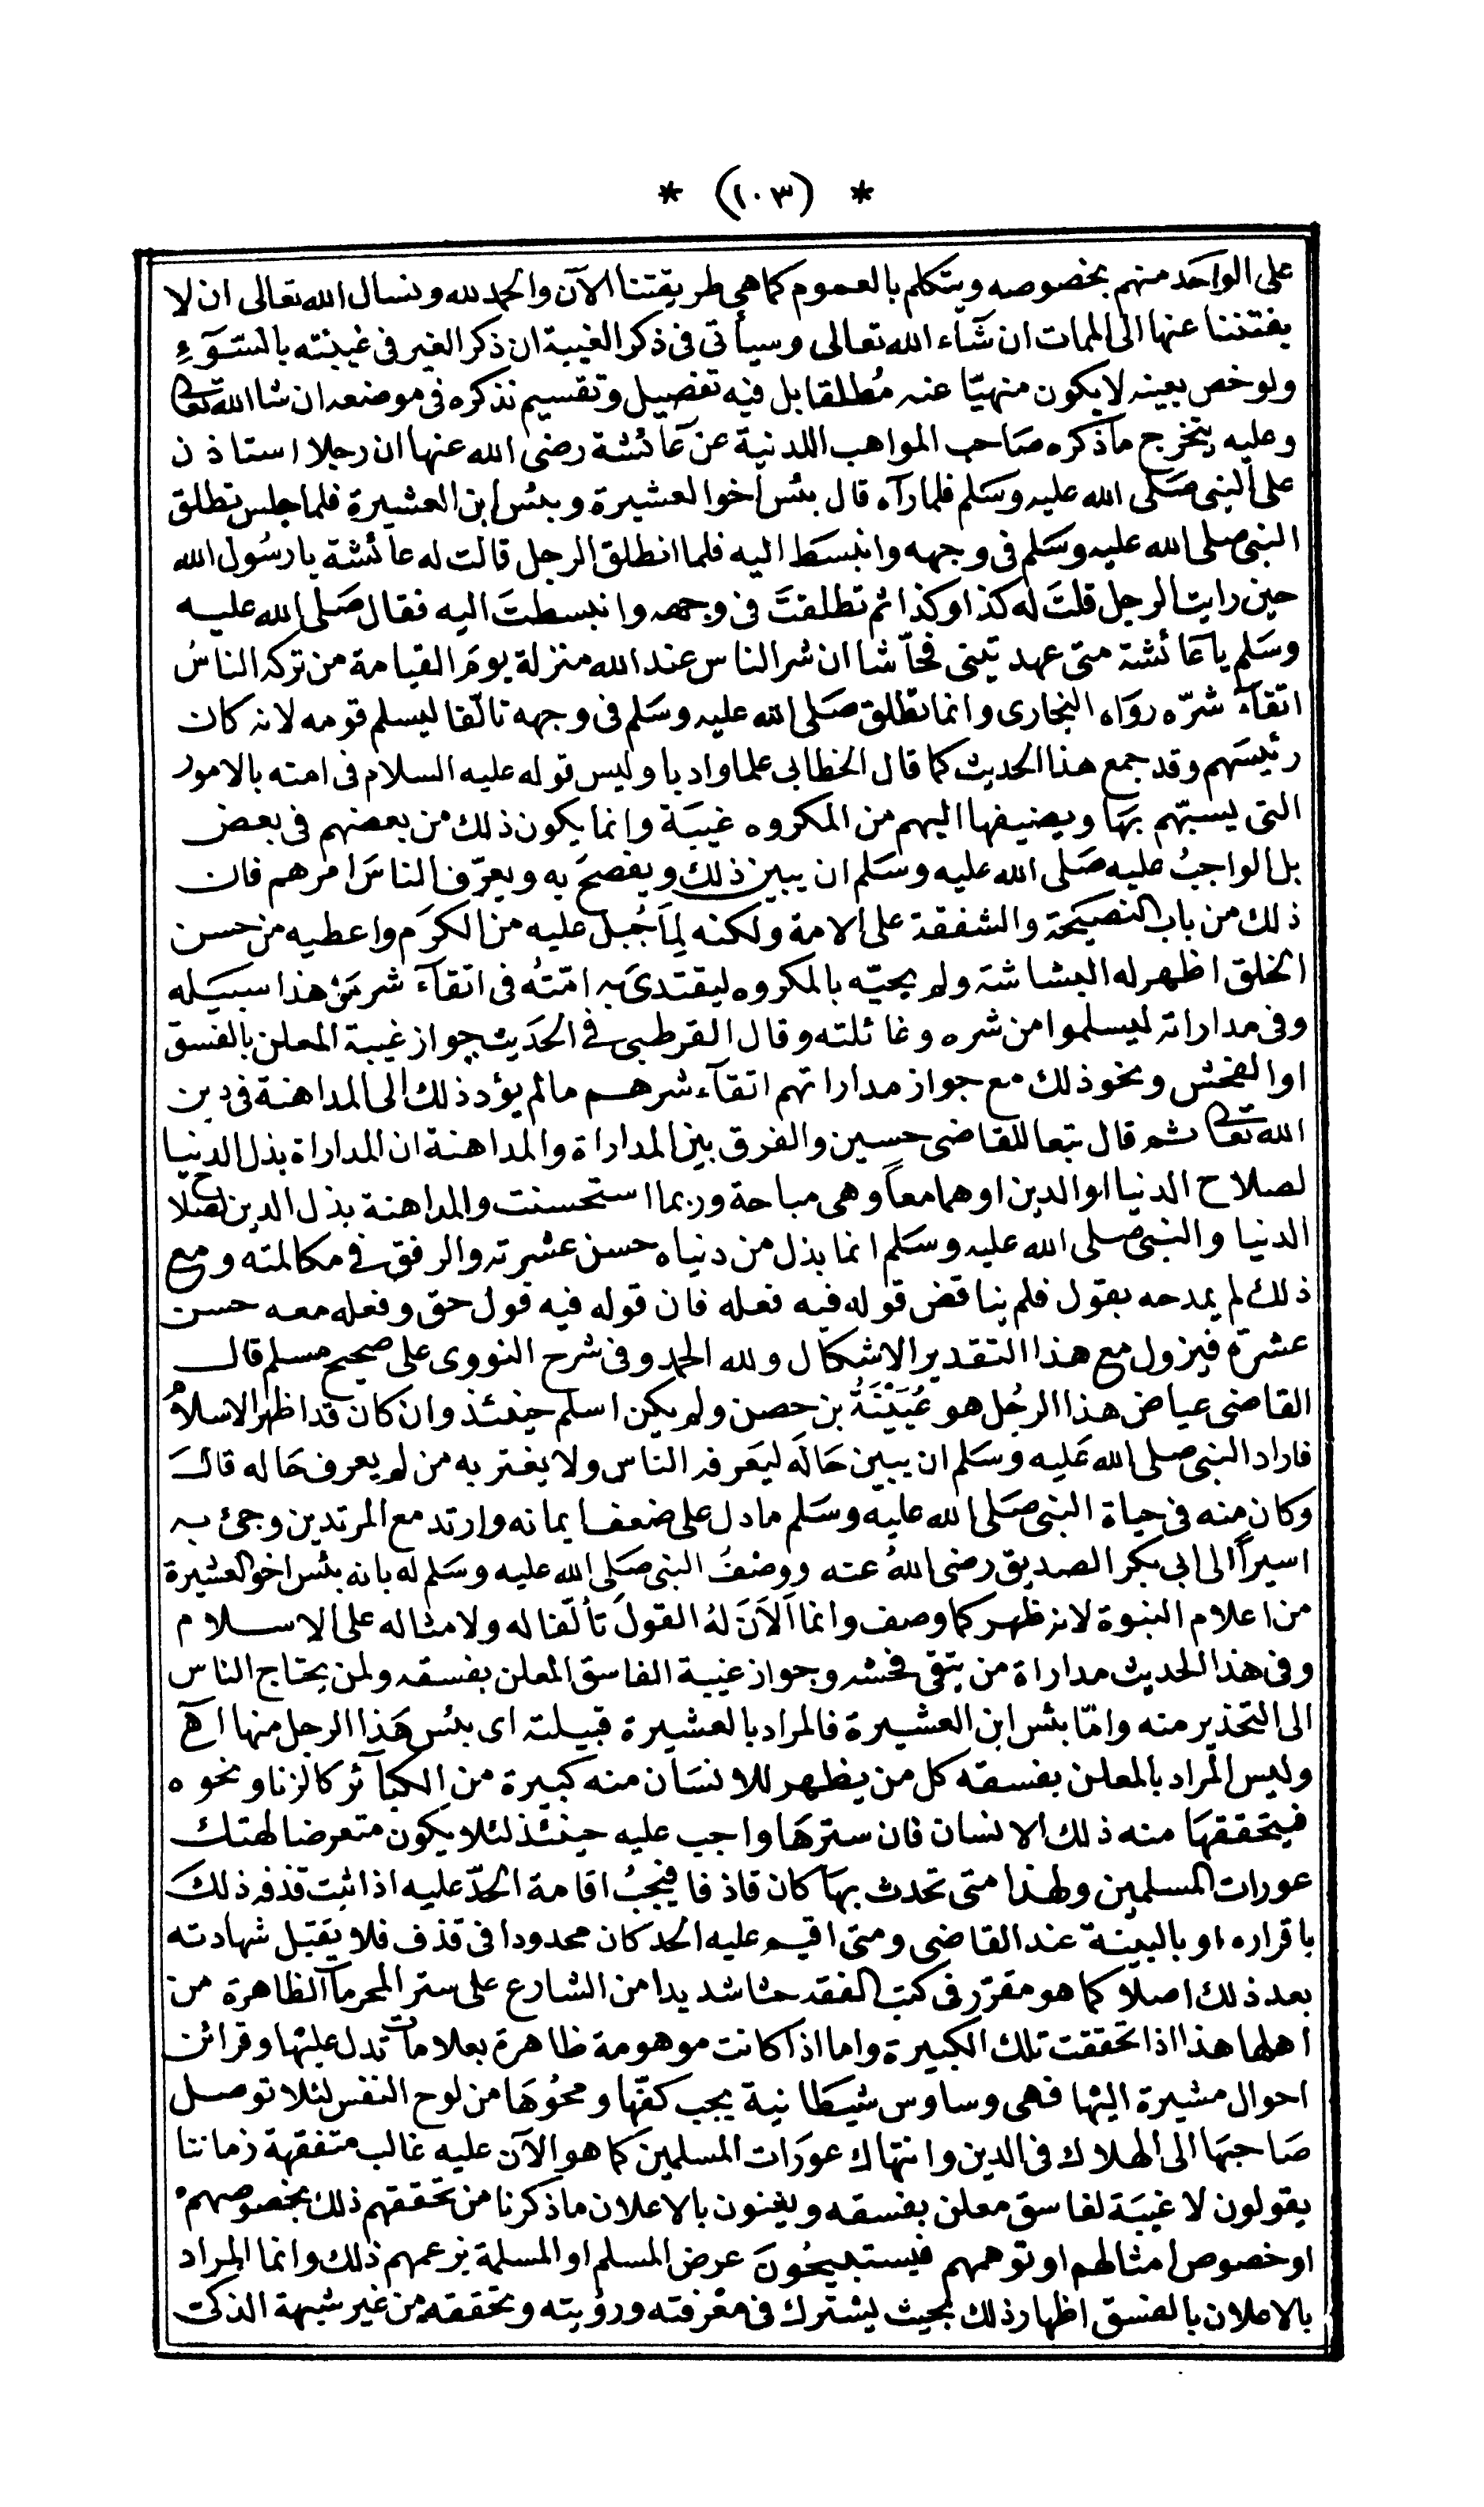 * (١٠٣) *
على الواحد منهم بخصوصه ويتكلم بالعموم كما هى طريقتنا الآن والحمد لله ونسال الله تعالى ان لا
يفتننا عنها الى الممات ان شآء الله تعالى وسيأتى فى ذكر الغيبة ان ذكر الغير فى غيبته بالسّوءِ
ولو خص بعينه لا يكون منهيّا عنه مُطلقا بل فيه تفصيل وتقسيم نذكره فى موضعه ان شا الله تعالى
وعليه يتخرج ما ذكره صاحب المواهب اللدنية عن عآئشة رضى الله عنها ان رجلا استاذن
على النبى صَلى الله عليه وسَلم فلما رآه قال بئس اخوا العشيرة وبئس ابن العشيرة فلما جلس تطلق
النبى صلى الله عليه وسَلم فى وجهه وانبسَط اليه فلما انطلق الرجل قالت له عائشة يا رسُول الله
حين رايت الرجل قلتَ له كذا وكذا ثم تطلقتَ فى وجهه وانبسطتَ اليه فقال صَلى الله عليه
وسَلم يا عآئشة متى عهدتينى فحّاشا ان شر الناس عند الله منزلة يومَ القيامة من تركه الناسُ
اتقآء شرّه روَاه البخارى وانما تطلق صَلى الله عليه وسَلم فى وجهه تالّفا ليسلم قومه لانه كان
رئيسَهم وقد جمع هذا الحديث كما قال الخطابى علما وادبا وليس قوله عليه السلام فى امته بالامور
التى يسبّهم بهَا ويضيفها اليهم من المكروه غيبَة وانما يكون ذلك من بعضهم فى بعض
بل الواجبُ عليه صَلى الله عليه وسَلم ان يبين ذلك ويفصحَ به ويعرّف الناسَ امرهم فان
ذلك من باب النصيحَة والشفقة على الامة ولكنه لِمَا جُبل عليه من الكرَم واعطيه من حسن
الخلق اظهر له البشاشة ولم يجبّه بالمكروه ليقتدىَ به امّتهُ فى اتقآء شر مَن هذا سبيَله
وفى مداراته ليسلموا من شره وغائلته وقال القرطبى فى الحَديث جواز غيبة المعلن بالفسق
او الفحش ونحو ذلك مع جواز مداراتهم اتقآء شرهم ما لم يؤد ذلك الى المداهنة فى دين
الله تعالى ثم قال تبعا للقاضى حسين والفرق بين المداراة والمداهنة ان المداراة بذل الدنيا
لصلاح الدنيا او الدين او هما معاً وهى مباحة وربما استحسنت والمداهنة بذل الدين لصلاح
الدنيا والنبى صلى الله عليه وسَلم انما بذل من دنياه حسن عشرته والرفق فى مكالمته ومع
ذلك لم يمدحه بقول فلم يناقض قوله فيه فعله فان قوله فيه قول حق وفعله معه حسن
عشرة فيزول مع هذا التقدير الاشكال ولله الحمد وفى شرح النووى على صحيح مسلم قال
القاضى عياض هذا الرجُل هو عُيَيْنَةُ بن حصن ولم يكن اسلم حينئذ وان كان قد اظهر الاسلامُ
فاراد النبى صلى الله عَليه وسَلم ان يبين حَاله ليَعرفه الناس ولا يغتر به من لم يعرف حَاله قالَ
وكان منه فى حياة النبى صَلى الله عليه وسَلم ما دل على ضعف ايمانه وارتد مع المرتدين وجئ به
اسيراً الى ابى بكر الصديق رضى اللهُ عنه ووصْفُ النبى صَلى الله عليه وسَلم له بانه بئس اخو العشيرة
من اعلام النبوة لانه ظهر كما وصف وانما اَلاَنَ لهُ القولَ تأَلّفا له ولامثاله على الاسلام
وفى هذا الحديث مداراة من يتقى فحشه وجواز غيبة الفاسق المعلن بفسقه ولمن يحتاج الناس
الى التحذير منه وامّا بئس ابن العشيرة فالمراد بالعشيرة قبيلته اى بئس هَذا الرجل منها اهـ
وليس المراد بالمعلن بفسقه كل من يظهر للانسَان منه كبيرة من الكبآئر كالزنا ونحوه
فيتحققهَا منه ذلك الانسان فان سترهَا واجب عليه حينئذ لئلا يكون متعرضا لهتك
عورات المسلمين ولهذا متى تحدث بهَا كان قاذفا فيجبُ اقامة الحدّ عليه اذا ثبت قذفه ذلكَ
باقراره او بالبينة عند القاضى ومتى اقيم عليه الحد كان محدودا فى قذف فلا يَقبل شهادته
بعد ذلك اصلا كما هو مقرّر فى كتب الفقه حثا شديدا من الشارع على ستر المحرمات الظاهرة من
اهلها هذا اذا تحققت تلك الكبيرة واما اذا كانت موهومة ظاهرة بعلامات تدل عليْها وقرائن
احوال مشيرة اليْها فهى وساوس شيطَانية يجب كفّها ومحوُهَا من لوح النفس لئلا توصل
صَاحبَها الى الهلاك فى الدين وانتهاك عورَات المسلمينَ كما هو الآن عليه غالب متفقهة زماننا
يقولون لا غيبَة لفاسق معلن بفسقه ويعنون بالاعلان ما ذكرنا من تحققهم ذلك بخصوصهم
او خصوص امثالهم او توهمهم فيستبيحُونَ عرض المسلم او المسلمة بزعمهم ذلك وانما المراد
بالاعلان بالفسق اظهار ذلك بحيث يشترك فى معرفته ورؤيته وتحققه من غير شبهة الذكى